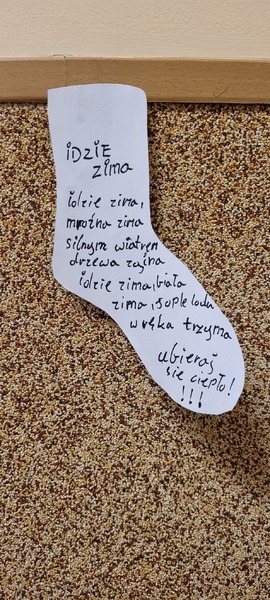 iDZiE
ZiMA
idzie zima,
mroźna zima
silnym wiatrem
drzewa zgina
idzie zima, biała
zima, sople lodu
w ręka trzyma
ubieraś
się ciepło!
!!!